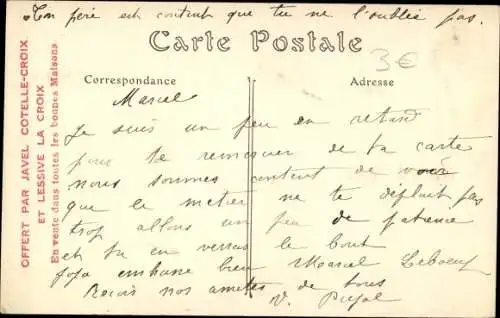 Ton père est content que tu ne l'oublie pas.
Carte Postale
3€
Correspondance
Adresse
Marcel
Je suis un peu en retard
pour te remercier de ta carte
nous sommes content de voir
que le metier ne te déplait pas
trop allons un peu de patience
et tu en verras le bout
embrasse bien Marcel Leboeuf
Recois nos amitiés de tous
V. Pujol
OFFERT PAR JAVEL COTELLE-CROIX
ET LESSIVE LA CROIX
En vente dans toutes les bonnes Maisons